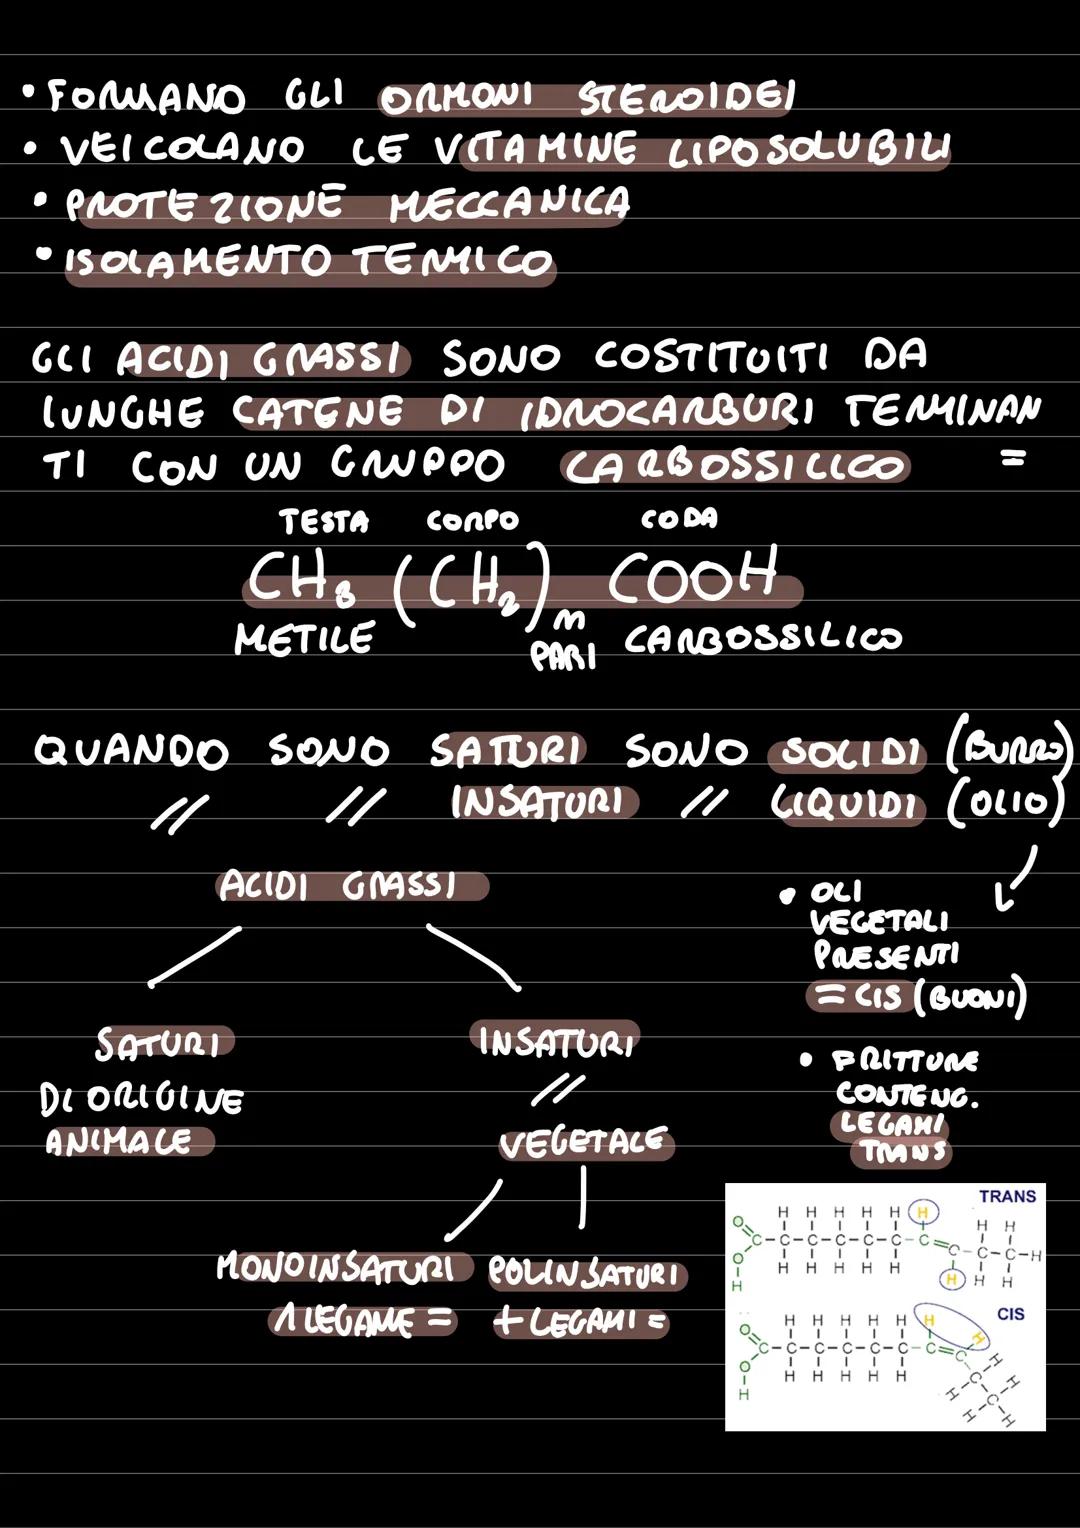 • FORMANO GLI ORMONI STEROIDEI
• VEICOLANO LE VITAMINE LIPOSOLUBILI
• PROTEZIONE MECCANICA
• ISOLAMENTO TERMICO
GLI ACIDI GRASSI SONO COSTITUITI DA
LUNGHE CATENE DI IDROCARBURI TERMINAN
TI CON UN GRUPPO CARBOSSILICO =
TESTA CORPO CODA
CH3 (CH2)n COOH
METILE PARI CARBOSSILICO
QUANDO SONO SATURI SONO SOLIDI (BURRO)
// // INSATURI // LIQUIDI (OLIO)
ACIDI GRASSI
• OLI
VEGETALI
PRESENTI
= CIS (BUONI)
SATURI INSATURI
DI ORIGINE //
ANIMALE VEGETALE
• FRITTURE
CONTENG.
LEGAMI
TRANS
MONOINSATURI POLINSATURI
1 LEGAME = + LEGAMI =
TRANS
H H H H H H
H H
O
C-C-C-C-C-C-C=C-C-C-H
O H H H H H H H H
H
CIS
H H H H H H H
O
C-C-C-C-C-C-C=C
O H H H H H
H
H H
C
H C H
H H